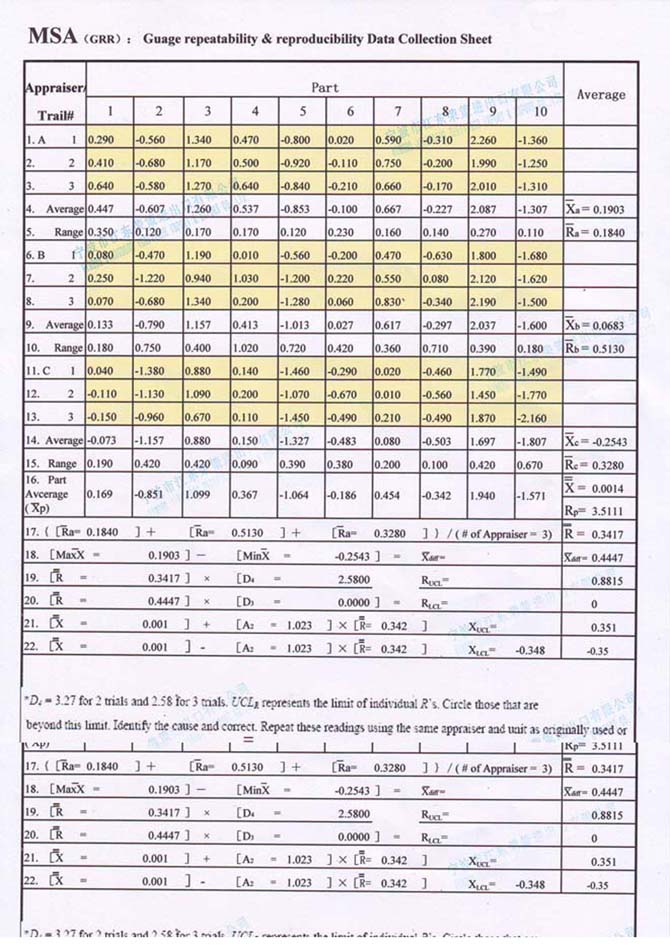 MSA (GRR) : Guage repeatability & reproducibility Data Collection Sheet
Appraiser/ Part Average
Trail# 1 2 3 4 5 6 7 8 9 10
1. A 1 0.290 -0.560 1.340 0.470 -0.800 0.020 0.590 -0.310 2.260 -1.360
2. 2 0.410 -0.680 1.170 0.500 -0.920 -0.110 0.750 -0.200 1.990 -1.250
3. 3 0.640 -0.580 1.270 0.640 -0.840 -0.210 0.660 -0.170 2.010 -1.310
4. Average 0.447 -0.607 1.260 0.537 -0.853 -0.100 0.667 -0.227 2.087 -1.307 X̄a = 0.1903
5. Range 0.350 0.120 0.170 0.170 0.120 0.230 0.160 0.140 0.270 0.110 R̄a = 0.1840
6. B 1 0.080 -0.470 1.190 0.010 -0.560 -0.200 0.470 -0.630 1.800 -1.680
7. 2 0.250 -1.220 0.940 1.030 -1.200 0.220 0.550 0.080 2.120 -1.620
8. 3 0.070 -0.680 1.340 0.200 -1.280 0.060 0.830 -0.340 2.190 -1.500
9. Average 0.133 -0.790 1.157 0.413 -1.013 0.027 0.617 -0.297 2.037 -1.600 X̄b = 0.0683
10. Range 0.180 0.750 0.400 1.020 0.720 0.420 0.360 0.710 0.390 0.180 R̄b = 0.5130
11. C 1 0.040 -1.380 0.880 0.140 -1.460 -0.290 0.020 -0.460 1.770 -1.490
12. 2 -0.110 -1.130 1.090 0.200 -1.070 -0.670 0.010 -0.560 1.450 -1.770
13. 3 -0.150 -0.960 0.670 0.110 -1.450 -0.490 0.210 -0.490 1.870 -2.160
14. Average -0.073 -1.157 0.880 0.150 -1.327 -0.483 0.080 -0.503 1.697 -1.807 X̄c = -0.2543
15. Range 0.190 0.420 0.420 0.090 0.390 0.380 0.200 0.100 0.420 0.670 R̄c = 0.3280
16. Part
Avcerage
(X̄p) 0.169 -0.851 1.099 0.367 -1.064 -0.186 0.454 -0.342 1.940 -1.571 X̿ = 0.0014
Rp= 3.5111
17. { [R̄a= 0.1840 ] + [R̄a= 0.5130 ] + [R̄a= 0.3280 ] } / ( # of Appraiser = 3) R̿ = 0.3417
18. [MaxX̄ = 0.1903 ] — [MinX̄ = -0.2543 ] = X̄diff= X̄diff= 0.4447
19. [R̿ = 0.3417 ] × [D4 = 2.5800 RUCL= 0.8815
20. [R̿ = 0.4447 ] × [D3 = 0.0000 ] = RLCL= 0
21. [X̿ = 0.001 ] + [A2 = 1.023 ] × [R̿= 0.342 ] XUCL= 0.351
22. [X̿ = 0.001 ] - [A2 = 1.023 ] × [R̿= 0.342 ] XLCL= -0.348 -0.35
*D4 = 3.27 for 2 trials and 2.58 for 3 trials. UCLR represents the limit of individual R's. Circle those that are
beyond this limit. Identify the cause and correct. Repeat these readings using the same appraiser and unit as originally used or
Rp= 3.5111
17. { [R̄a= 0.1840 ] + [R̄a= 0.5130 ] + [R̄a= 0.3280 ] } / ( # of Appraiser = 3) R̿ = 0.3417
18. [MaxX̄ = 0.1903 ] — [MinX̄ = -0.2543 ] = X̄diff= X̄diff= 0.4447
19. [R̿ = 0.3417 ] × [D4 = 2.5800 RUCL= 0.8815
20. [R̿ = 0.4447 ] × [D3 = 0.0000 ] = RLCL= 0
21. [X̿ = 0.001 ] + [A2 = 1.023 ] × [R̿= 0.342 ] XUCL= 0.351
22. [X̿ = 0.001 ] - [A2 = 1.023 ] × [R̿= 0.342 ] XLCL= -0.348 -0.35